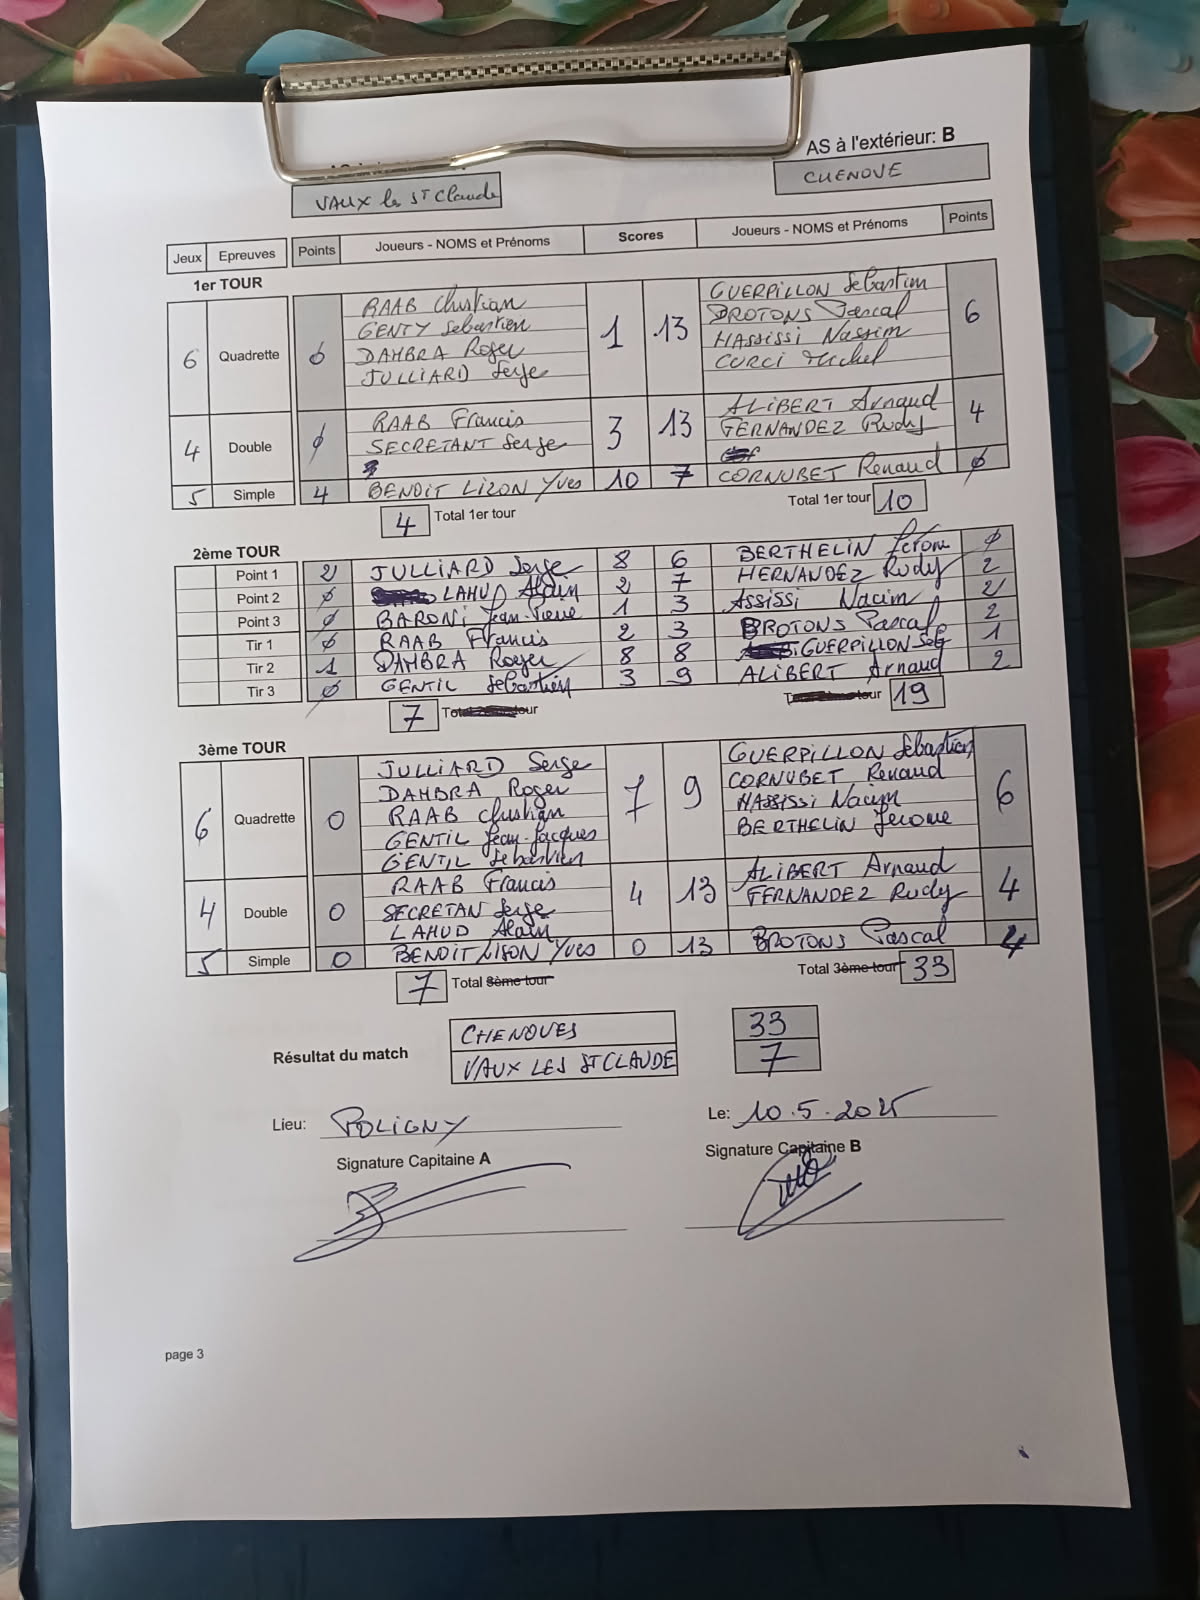 AS à l'extérieur: B
VAUX les St Claude
CHENOVE
Jeux Epreuves Points Joueurs - NOMS et Prénoms Scores Joueurs - NOMS et Prénoms Points
1er TOUR
6 Quadrette 0 RAAB Christian 1 13 GUERPILLON Sebastien 6
GENTY Sebastien BROTONS Pascal
DAMBRA Roger HASSISSI Nassim
JULLIARD Serge CURCI Michel
4 Double 0 RAAB Francis 3 13 ALIBERT Arnaud 4
SECRETANT Serge FERNANDEZ Rudy
5 Simple 4 BENOIT LIZON Yves 10 7 CORNUBET Renaud 0
4 Total 1er tour Total 1er tour 10
2ème TOUR
Point 1 2 JULLIARD Serge 8 6 BERTHELIN Jérôme 0
Point 2 0 LAHUD Alain 2 7 HERNANDEZ Rudy 2
Point 3 0 BARONI Jean-Pierre 1 3 ASSISSI Nacim 2
Tir 1 0 RAAB Francis 2 3 BROTONS Pascal 2
Tir 2 1 DAMBRA Roger 8 8 GUERPILLON Seb 1
Tir 3 0 GENTIL Sebastien 3 9 ALIBERT Arnaud 2
7 Total 2ème tour Total 2ème tour 19
3ème TOUR
6 Quadrette 0 JULLIARD Serge 7 9 GUERPILLON Sebastien 6
DAMBRA Roger CORNUBET Renaud
RAAB Christian HASSISSI Nacim
GENTIL Jean-Jacques BERTHELIN Jerome
GENTIL Sebastien
4 Double 0 RAAB Francis 4 13 ALIBERT Arnaud 4
SECRETAN Serge FERNANDEZ Rudy
LAHUD Alain
5 Simple 0 BENOIT LISON Yves 0 13 BROTONS Pascal 4
7 Total 3ème tour Total 3ème tour 33
Résultat du match
CHENOVES 33
VAUX LES ST CLAUDE 7
Lieu: POLIGNY Le: 10.5.2025
Signature Capitaine A Signature Capitaine B
page 3